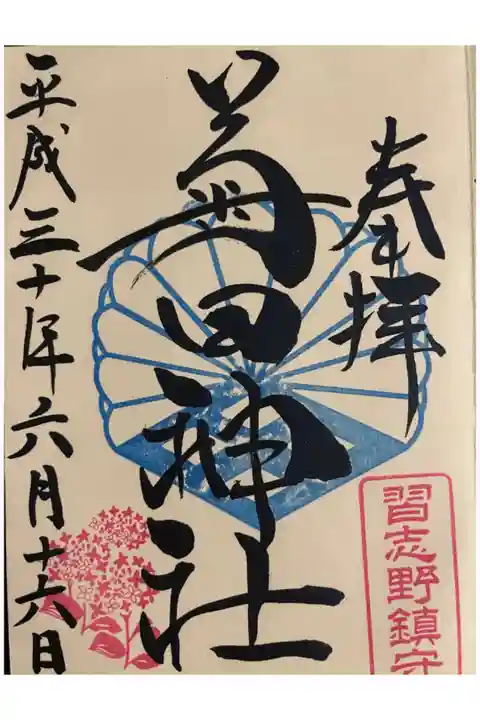 奉拝
習志野鎮守
菊田神社
平成三十年六月十六日